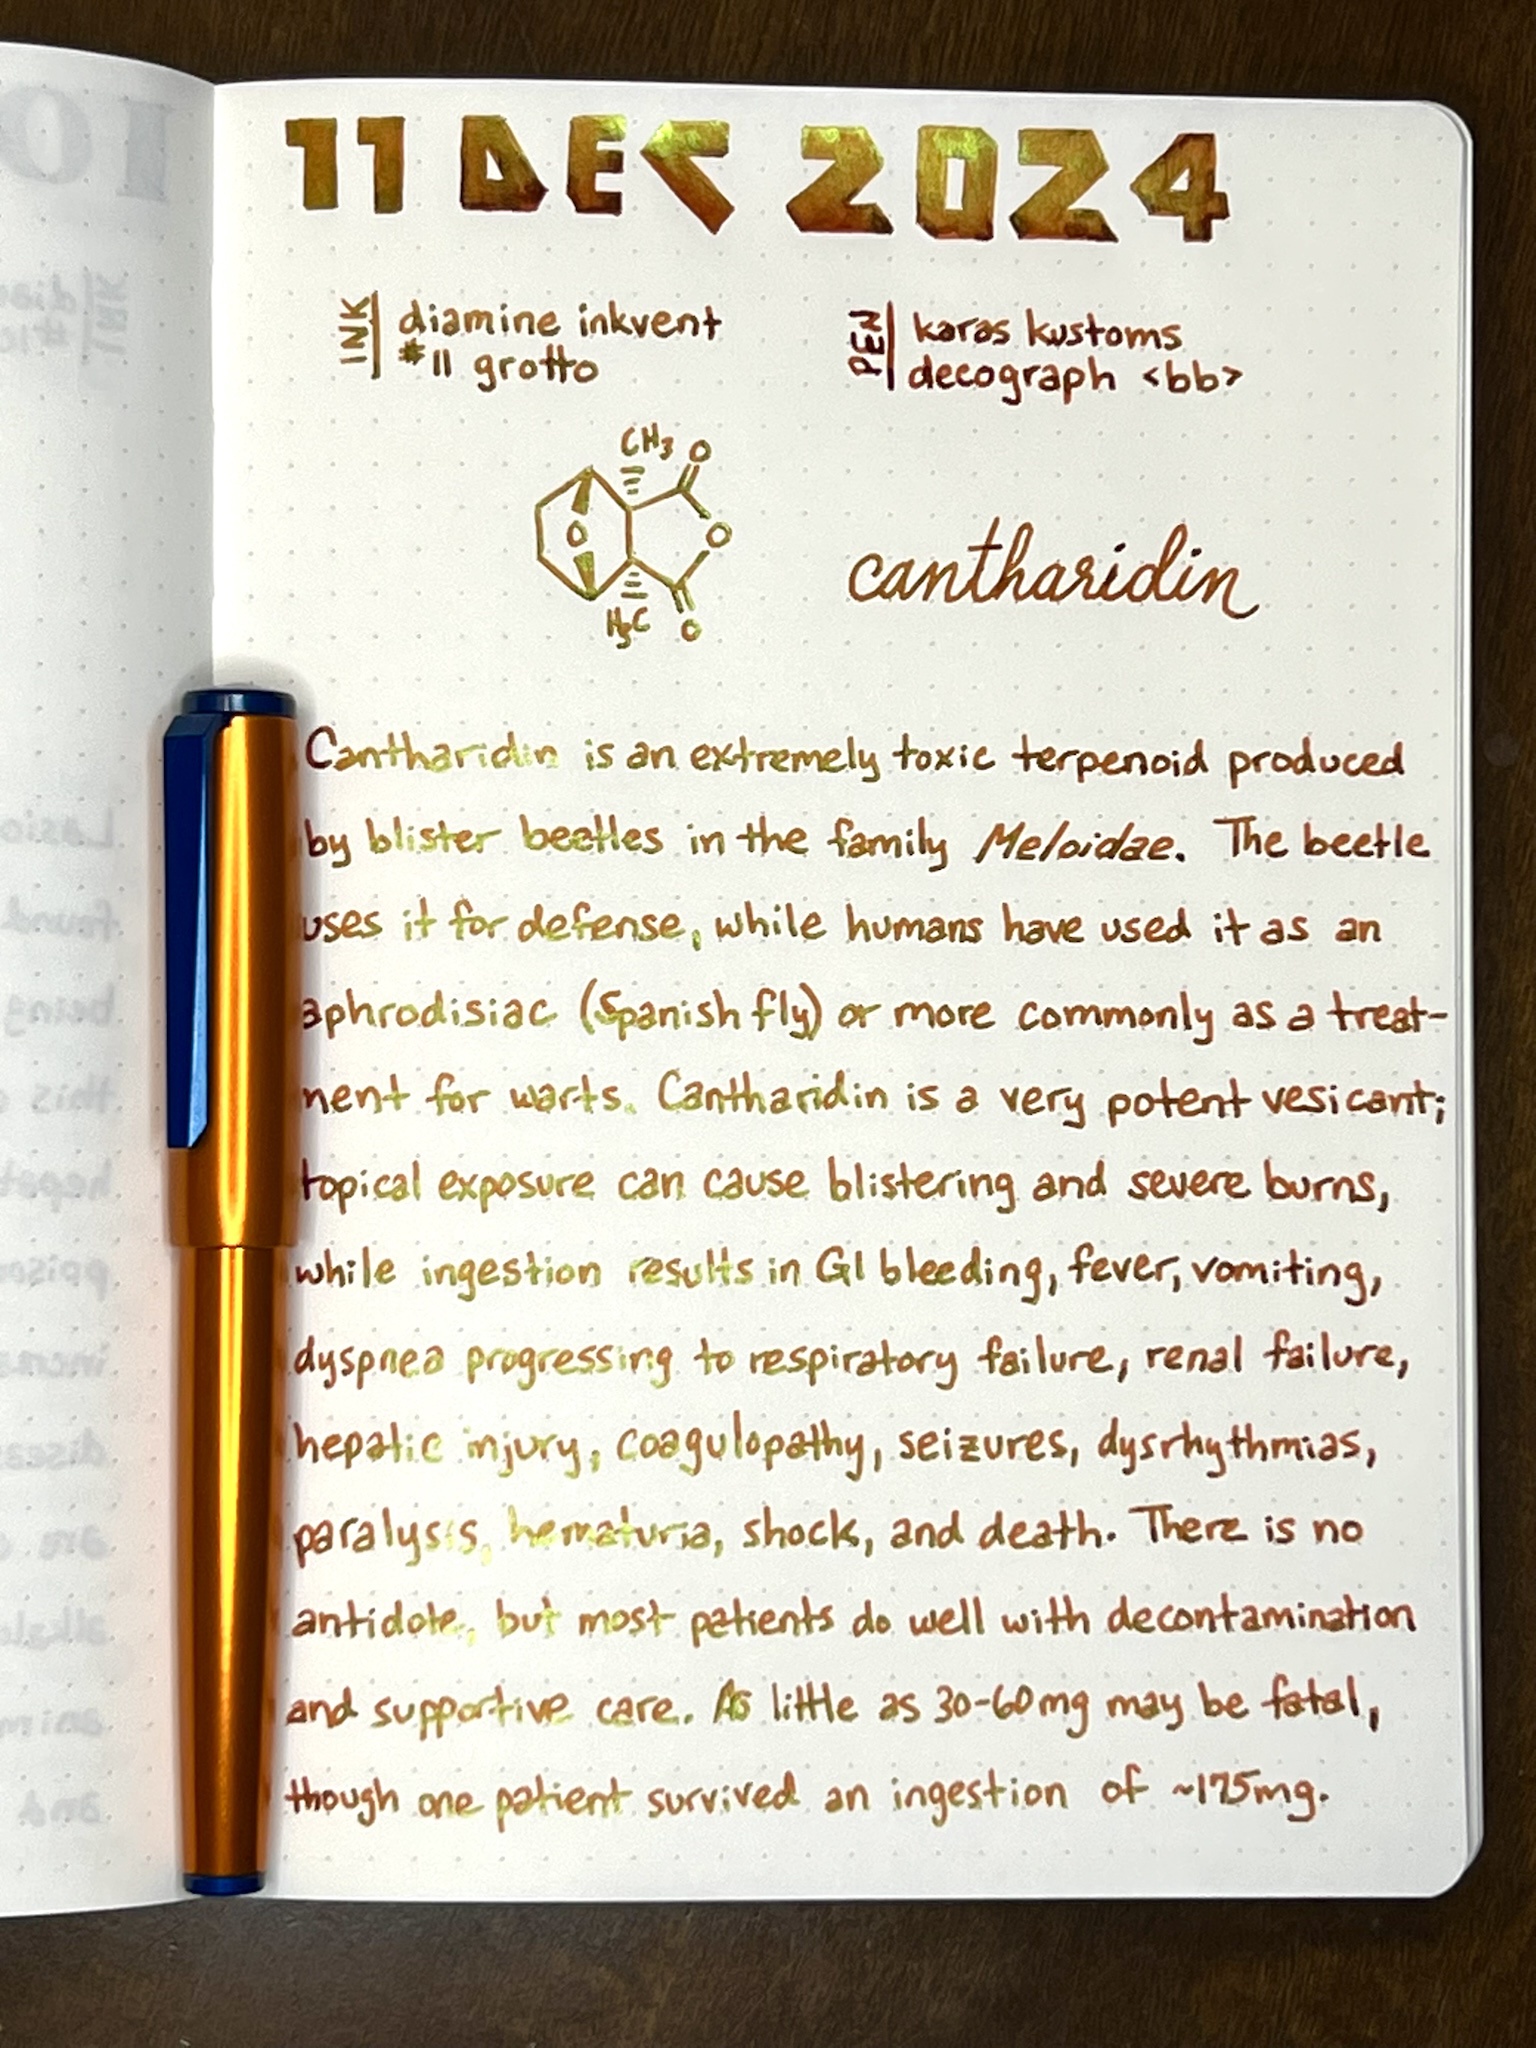 11 DEC 2024
INK
diamine inkvent
#11 grotto
PEN
karas kustoms
decograph <bb>
CH3
O
O
O
H3C
O
cantharidin
Cantharidin is an extremely toxic terpenoid produced
by blister beetles in the family Meloidae. The beetle
uses it for defense, while humans have used it as an
aphrodisiac (Spanish fly) or more commonly as a treat-
ment for warts. Cantharidin is a very potent vesicant;
topical exposure can cause blistering and severe burns,
while ingestion results in GI bleeding, fever, vomiting,
dyspnea progressing to respiratory failure, renal failure,
hepatic injury, coagulopathy, seizures, dysrhythmias,
paralysis, hematuria, shock, and death. There is no
antidote, but most patients do well with decontamination
and supportive care. As little as 30-60mg may be fatal,
though one patient survived an ingestion of ~175mg.